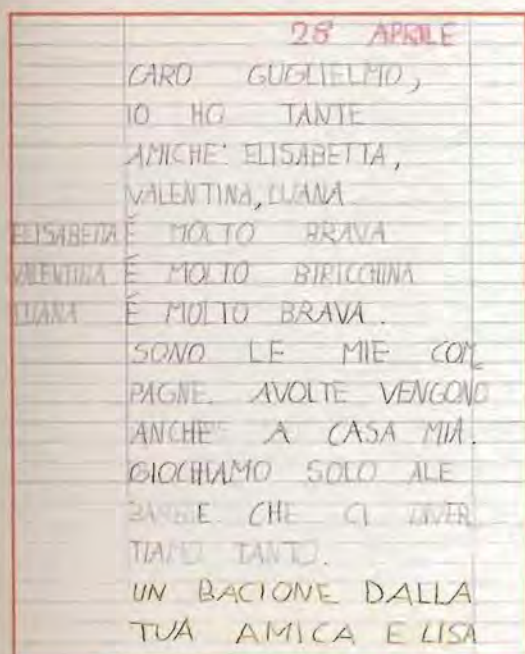 28 APRILE
CARO GUGLIELMO,
IO HO TANTE
AMICHE: ELISABETTA,
VALENTINA, LUANA
ELISABETTA É MOLTO BRAVA
VALENTINA É MOLTO BIRICCHINA
LUANA É MOLTO BRAVA.
SONO LE MIE COM
PAGNE. AVOLTE VENGONO
ANCHE A CASA MIA.
GIOCHIAMO SOLO ALE
BARBIE CHE CI DIVER
TIAMO TANTO.
UN BACIONE DALLA
TUA AMICA ELISA